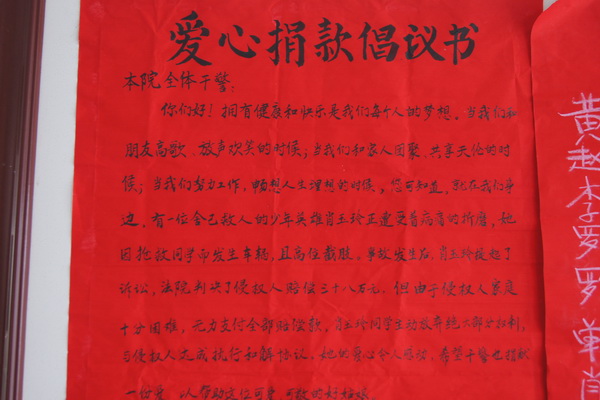 爱心捐款倡议书
本院全体干警:
你们好!拥有健康和快乐是我们每个人的梦想。当我们和
朋友高歌、放声欢笑的时候;当我们和家人团聚、共享天伦的时
候;当我们努力工作,畅想人生理想的时候,您可知道,就在我们身
边,有一位舍己救人的少年英雄肖玉玲正遭受着病魔的折磨,她
因抢救同学而发生车祸,且高位截肢。事故发生后,肖玉玲提起了
诉讼,法院判决了侵权人赔偿三十八万元。但由于侵权人家庭
十分困难,无力支付全部赔偿款,肖玉玲同学主动放弃绝大部分权利,
与侵权人达成执行和解协议。她的爱心令人感动,希望干警也捐献
一份爱,以帮助这位可爱、可敬的好姑娘
黄赵李罗罗 肖